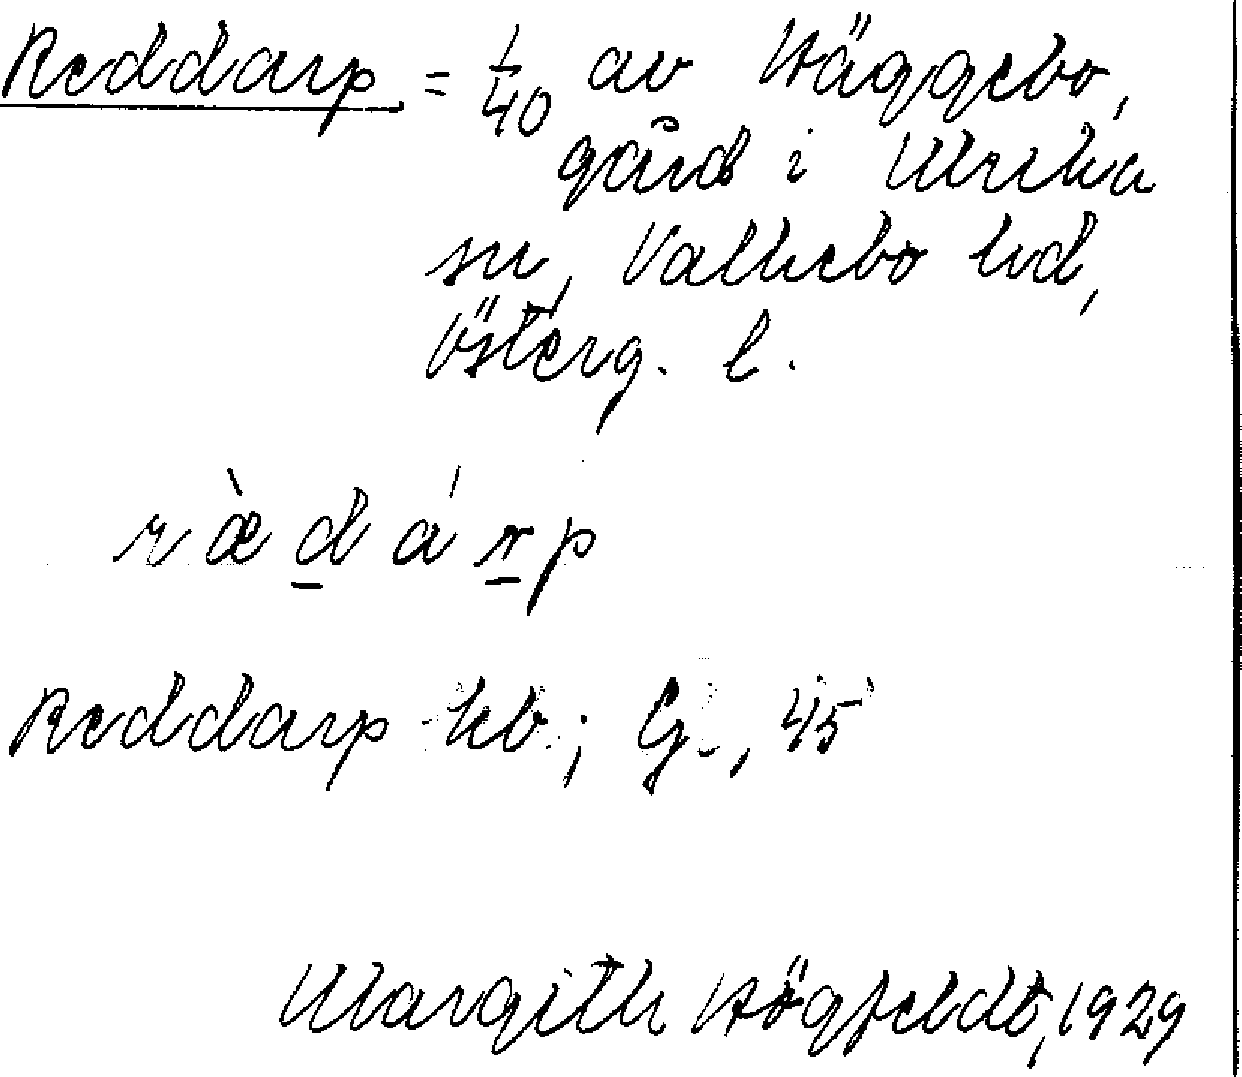 Reddarp = 1/40 av Häggebo,
gård i Ulrika
sn, Valkebo hd,
Österg. l.
ræ̀dárp
Reddarp kb; G., 45
Margith Högfeldt, 1929